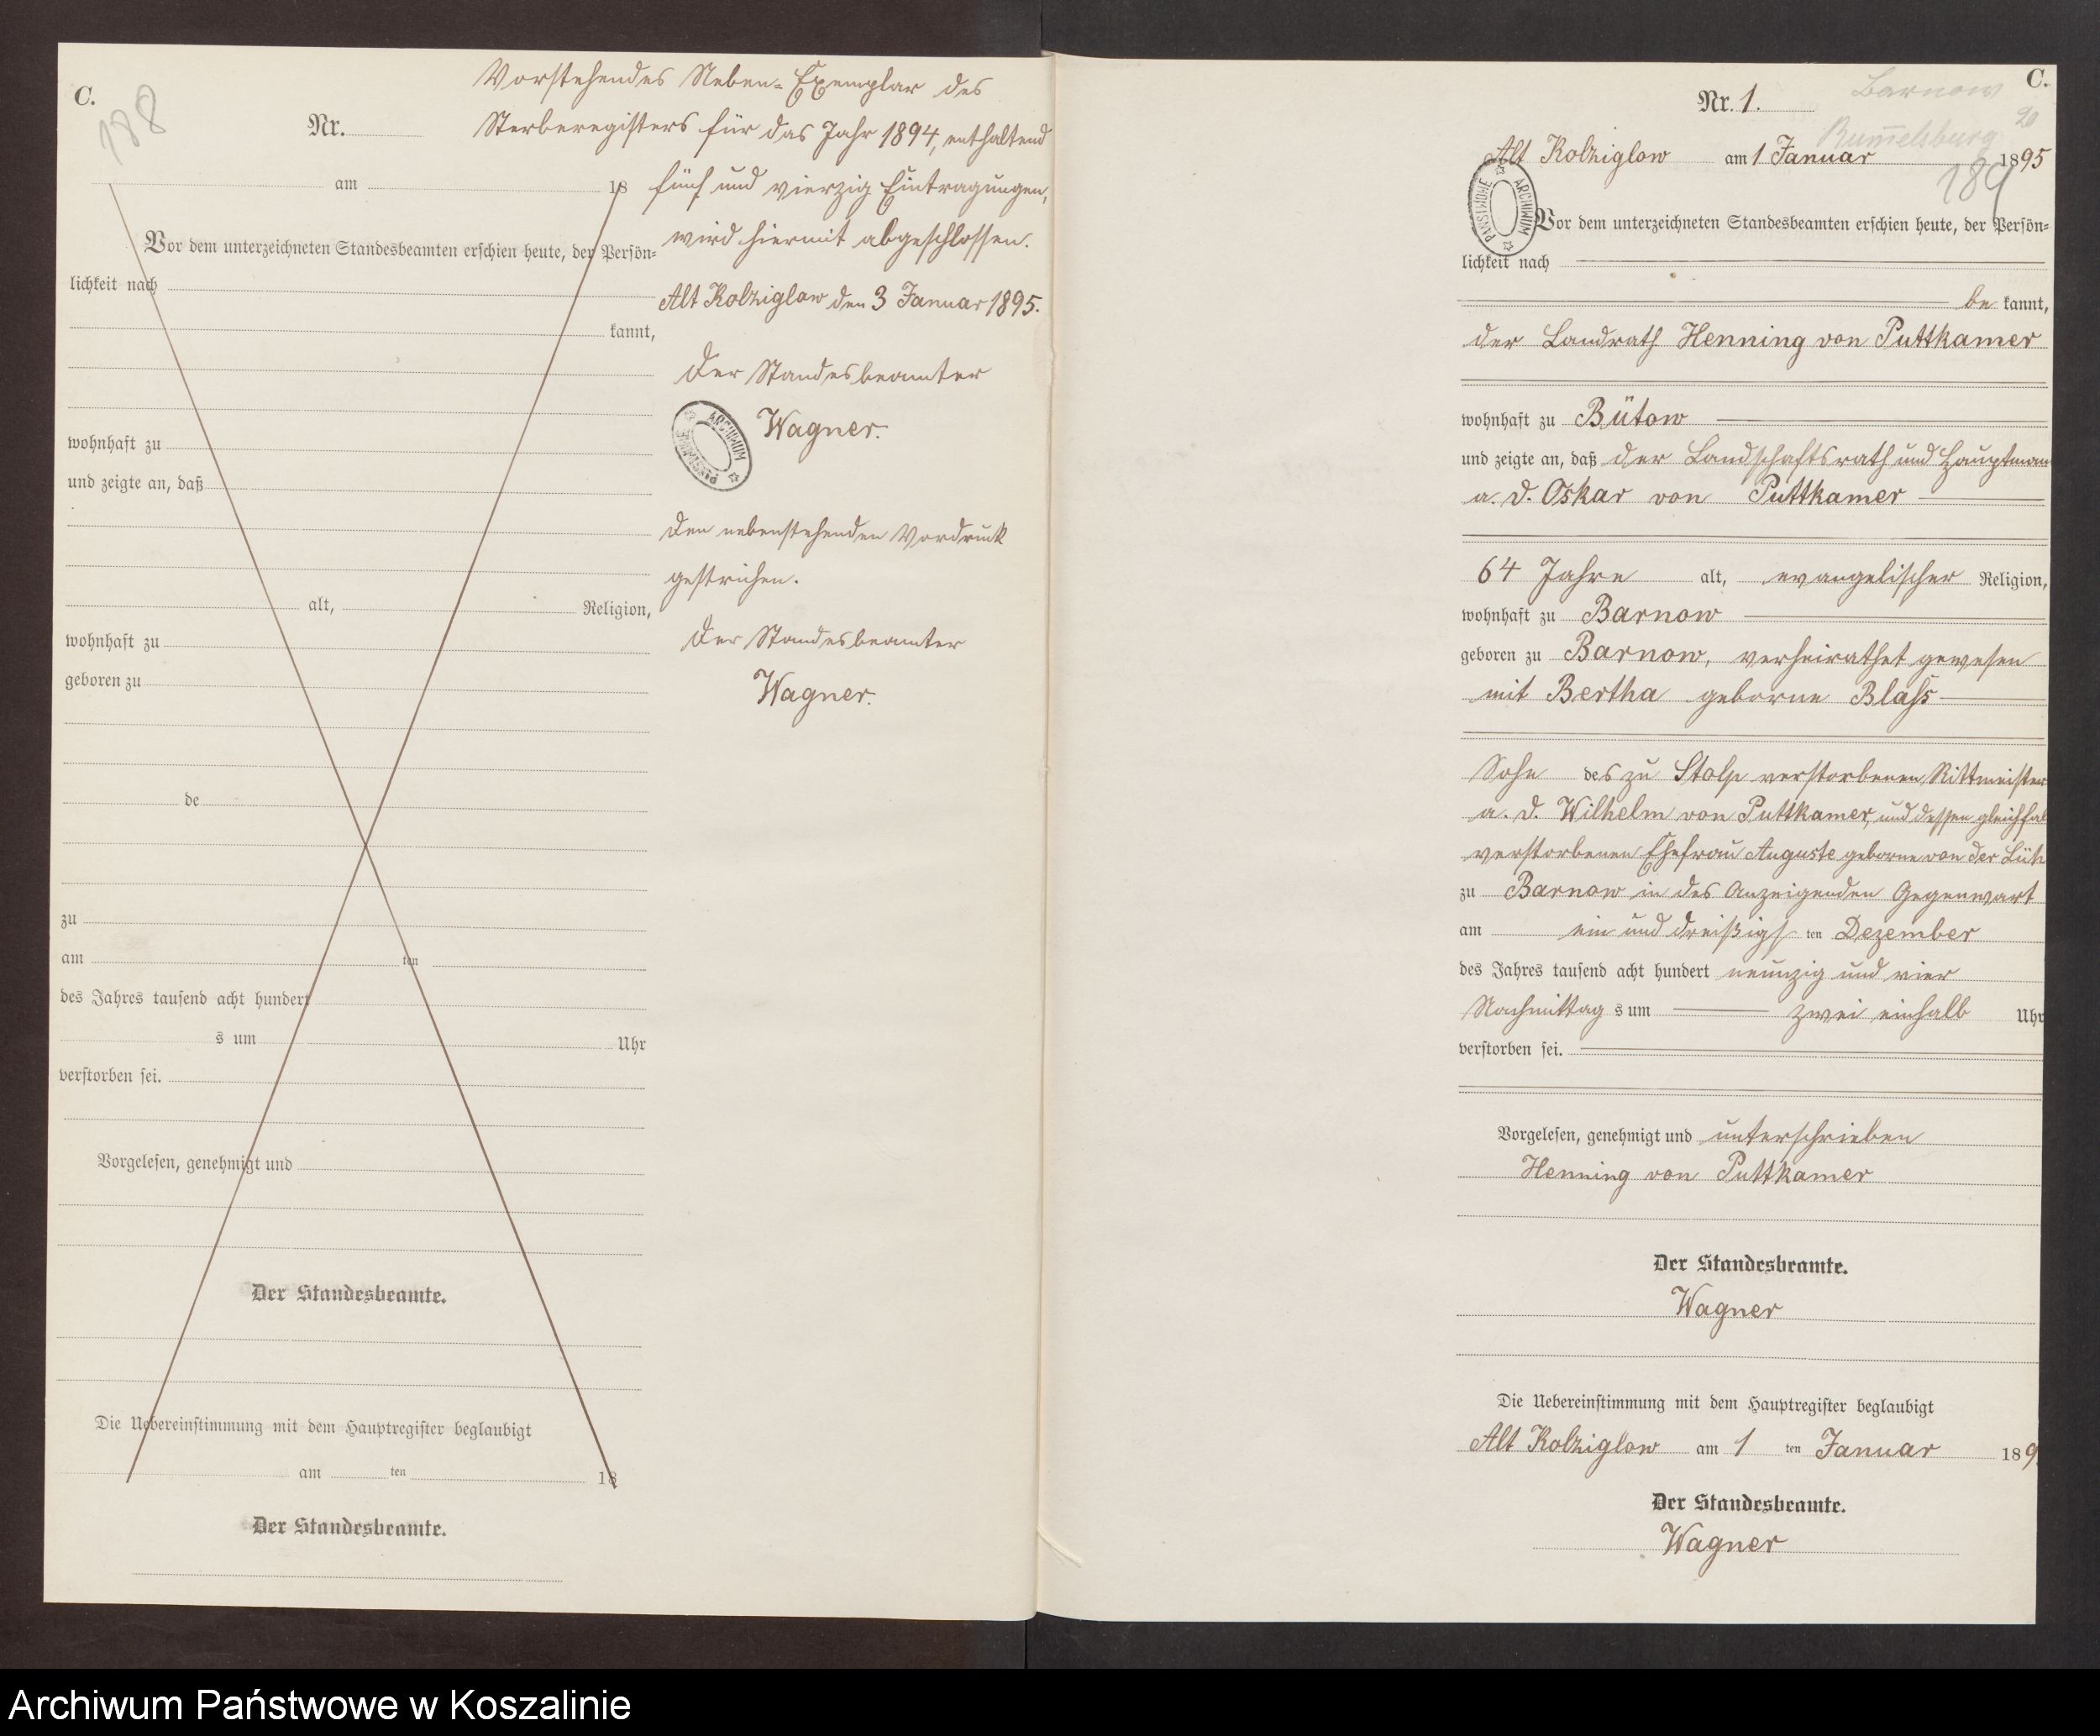 C.
188
Nr.
am 18
Vor dem unterzeichneten Standesbeamten erschien heute, der Persön-
lichkeit nach
kannt,
wohnhaft zu
und zeigte an, daß
alt, Religion,
wohnhaft zu
geboren zu
de
zu
am ten
des Jahres tausend acht hundert
s um Uhr
verstorben sei.
Vorgelesen, genehmigt und
Der Standesbeamte.
Die Uebereinstimmung mit dem Hauptregister beglaubigt
am ten 18
Der Standesbeamte.
Vorstehendes Neben-Exemplar des
Sterberegisters für das Jahr 1894, enthaltend
fünf und vierzig Eintragungen,
wird hiermit abgeschlossen.
Alt Kolziglow den 3 Januar 1895.
Der Standesbeamter
Wagner.
ARCHIWUM PAŃSTWOWE
Den nebenstehenden Vordruck
gestrichen.
Der Standesbeamter
Wagner.
C.
Barnow
Nr. 1.
90
Rummelsburg
Alt Kolziglow am 1 Januar 1895
189
ARCHIWUM PAŃSTWOWE
Vor dem unterzeichneten Standesbeamten erschien heute, der Persön-
lichkeit nach
be kannt,
der Landrath Henning von Puttkamer
wohnhaft zu Bütow
und zeigte an, daß der Landschaftsrath und Hauptmann
a. D. Oskar von Puttkamer
64 Jahre alt, evangelischer Religion,
wohnhaft zu Barnow
geboren zu Barnow, verheirathet gewesen
mit Bertha geborne Blaſs
Sohn des zu Stolp verstorbenen Rittmeister
a. D. Wilhelm von Puttkamer, und dessen gleichfal
verstorbenen Ehefrau Auguste geborne von der Lüh
zu Barnow in des Anzeigenden Gegenwart
am ein und dreißigs ten Dezember
des Jahres tausend acht hundert neunzig und vier
Nachmittag s um zwei einhalb Uhr
verstorben sei.
Vorgelesen, genehmigt und unterschrieben
Henning von Puttkamer
Der Standesbeamte.
Wagner
Die Uebereinstimmung mit dem Hauptregister beglaubigt
Alt Kolziglow am 1 ten Januar 189
Der Standesbeamte.
Wagner
Archiwum Państwowe w Koszalinie